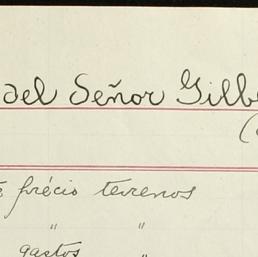 del Señor Gilbe
(
précio terrenos
" "
gastos "